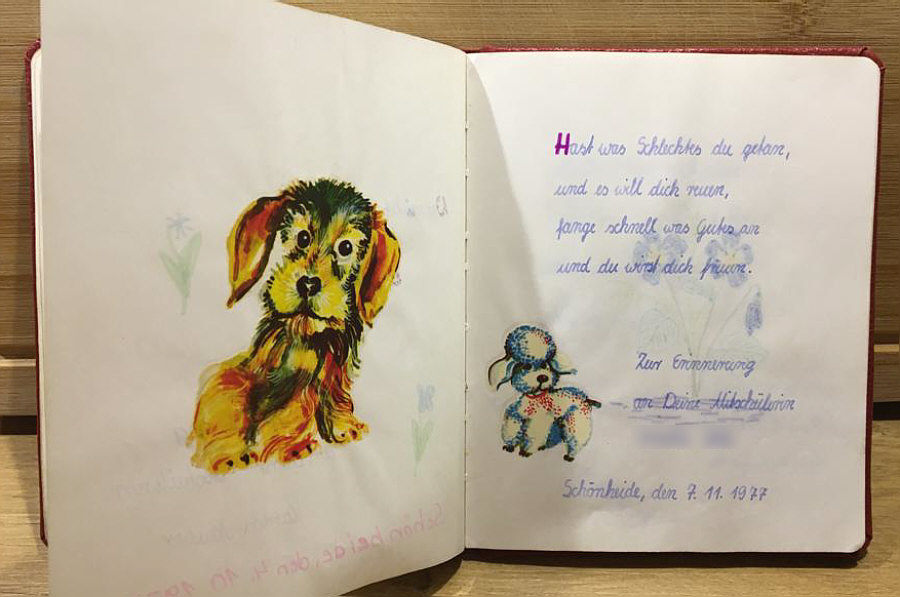 Schönheide, den 4. 10.
Hast was Schlechtes du getan,
und es will dich reuen,
fange schnell was Gutes an
und du wirst dich freuen.
Zur Erinnerung
an Deine Mitschülerin
Schönheide, den 7. 11. 1977